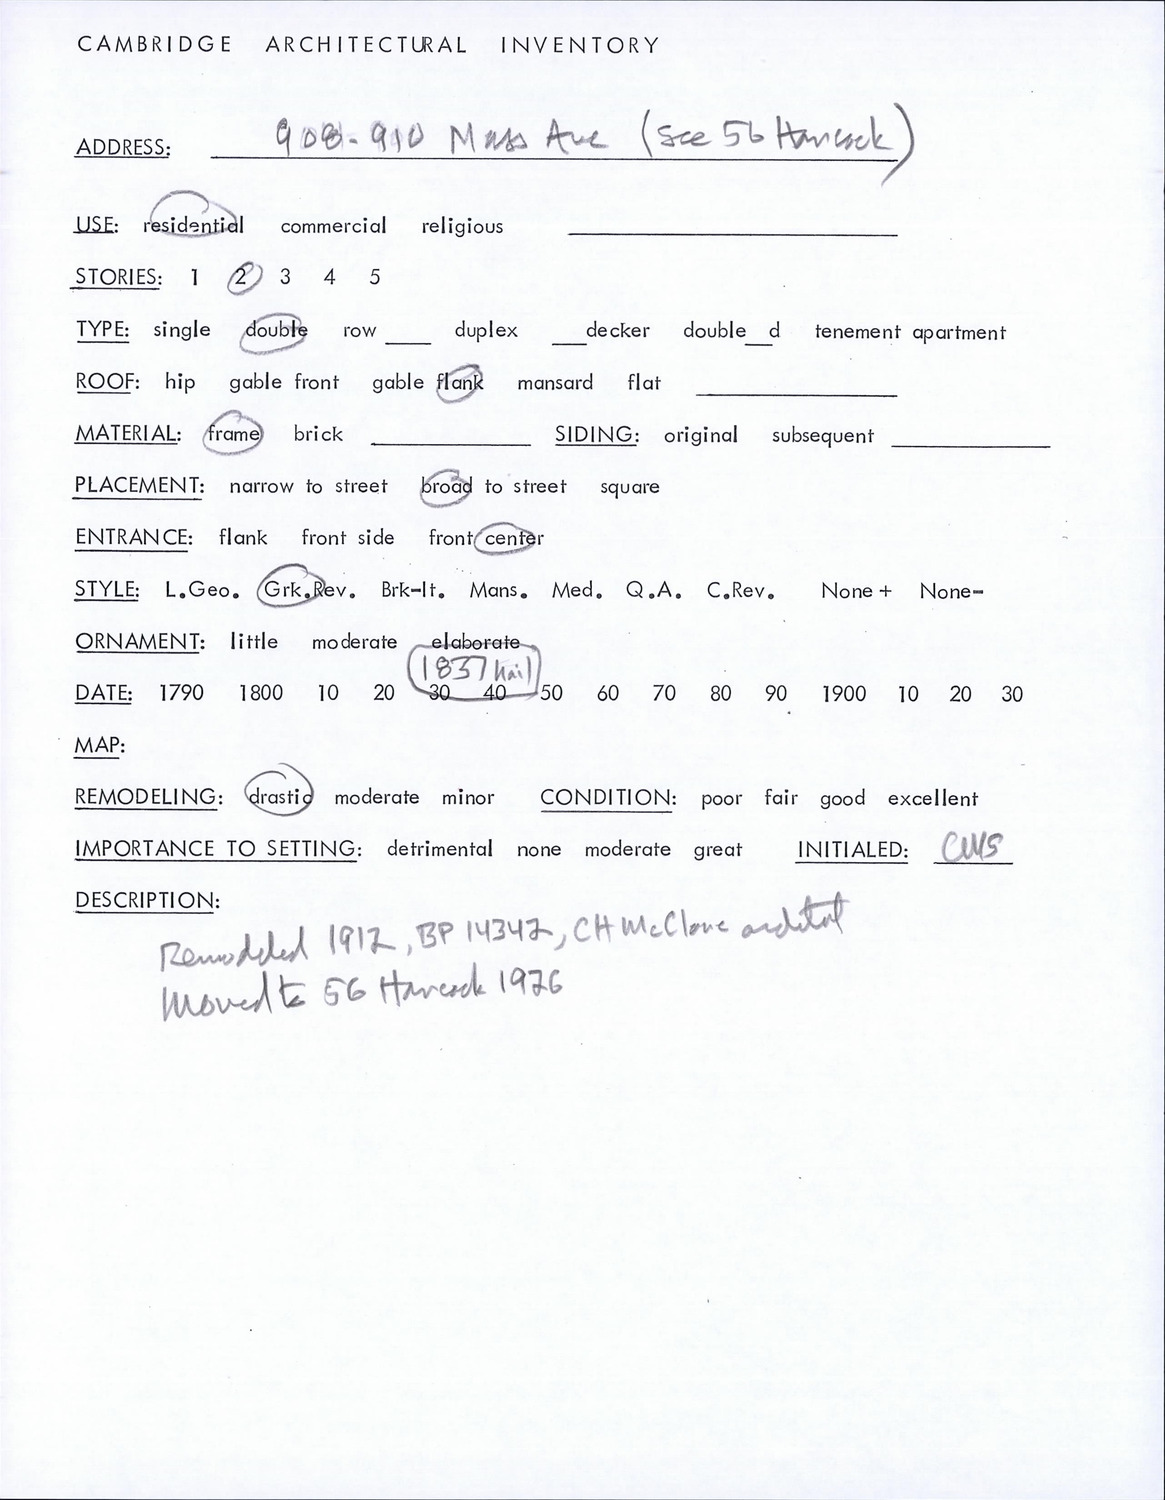 CAMBRIDGE ARCHITECTURAL INVENTORY
ADDRESS: 908-910 Mass Ave (See 56 Hancock)
USE: residential commercial religious
STORIES: 1 2 3 4 5
TYPE: single double row ___ duplex ___decker double__d tenement apartment
ROOF: hip gable front gable flank mansard flat
MATERIAL: frame brick SIDING: original subsequent
PLACEMENT: narrow to street broad to street square
ENTRANCE: flank front side front center
STYLE: L.Geo. Grk.Rev. Brk-It. Mans. Med. Q.A. C.Rev. None + None-
ORNAMENT: little moderate elaborate
1837 hail
DATE: 1790 1800 10 20 30 40 50 60 70 80 90 1900 10 20 30
MAP:
REMODELING: drastic moderate minor CONDITION: poor fair good excellent
IMPORTANCE TO SETTING: detrimental none moderate great INITIALED: CMS
DESCRIPTION:
Remodeled 1912, BP 14342, CH McClare architect
Moved to 56 Hancock 1926